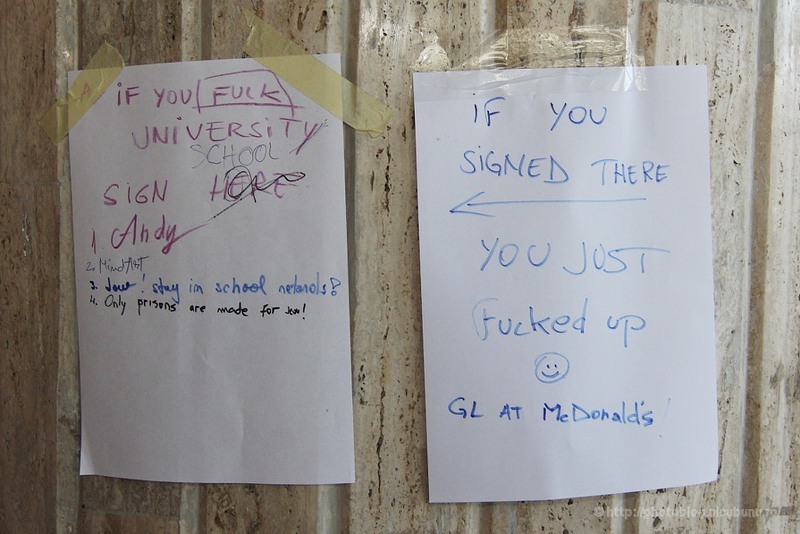 IF YOU FUCK
UNIVERSITY
SCHOOL
SIGN HERE
1. Andy
2. MindArt
3. stay in school
4. Only prisons are made for
IF YOU
SIGNED THERE
YOU JUST
Fucked up
GL AT McDonald's